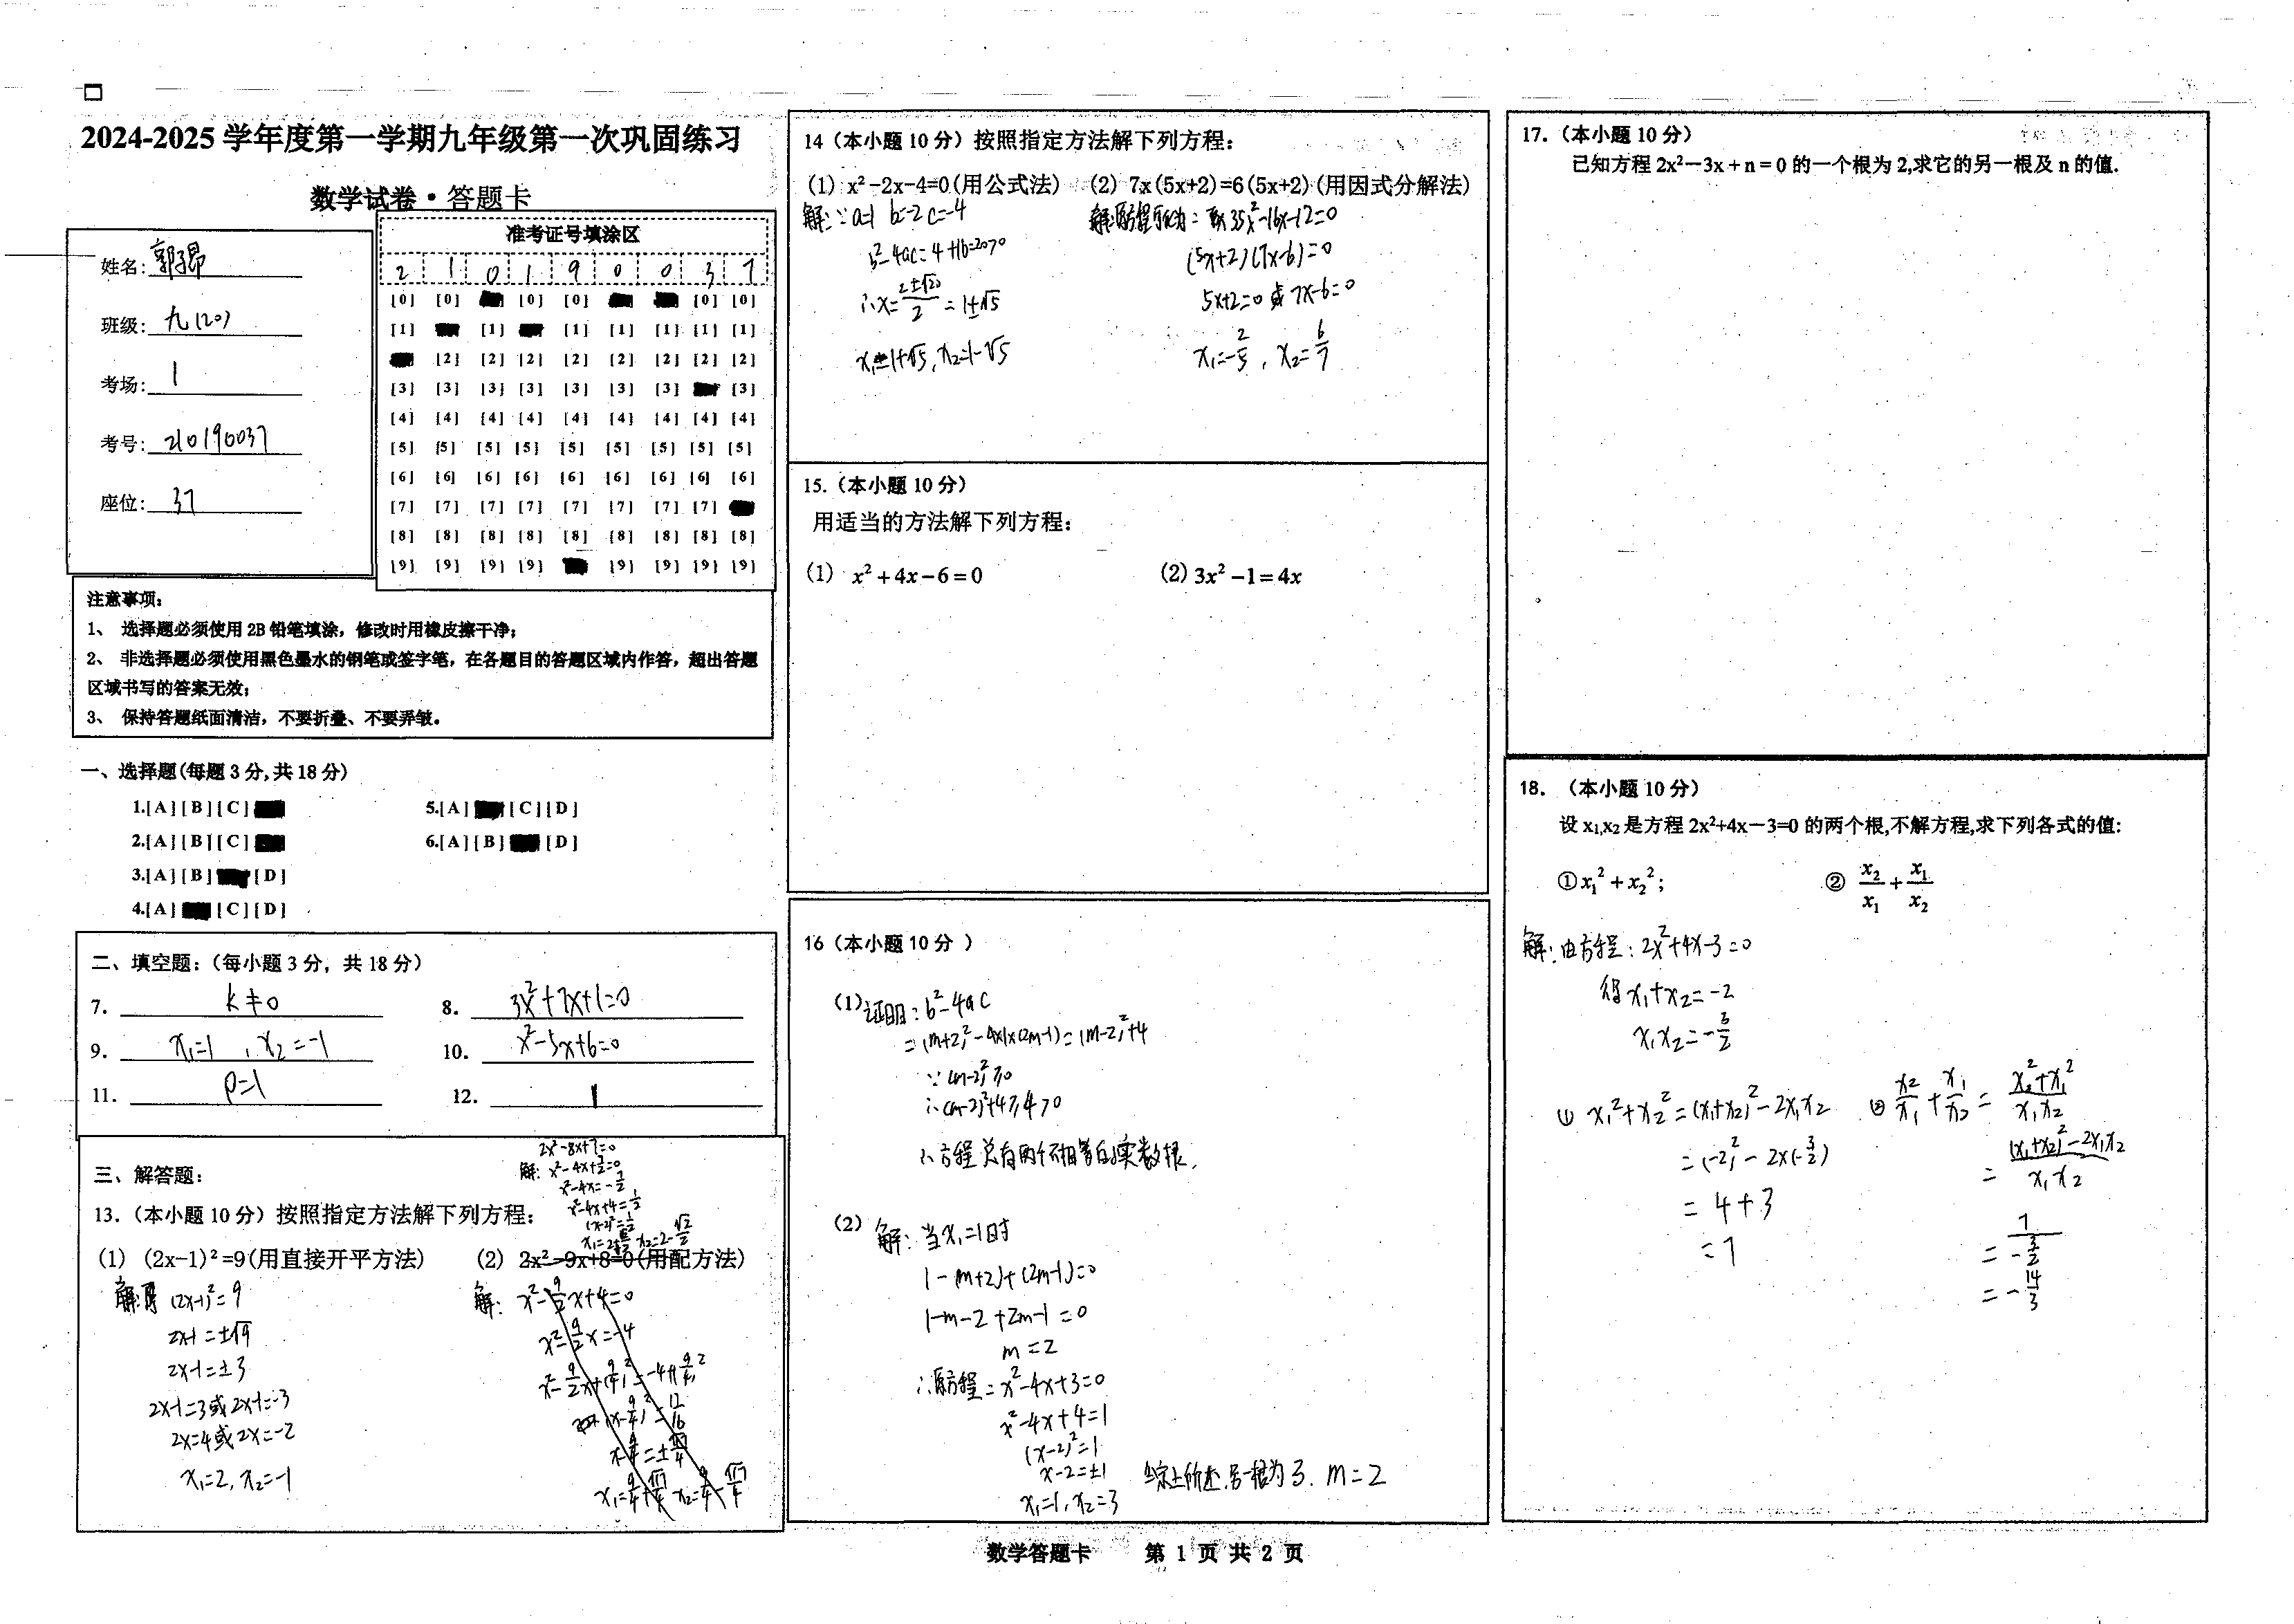 2024-2025 学年度第一学期九年级第一次巩固练习
数学试卷·答题卡
姓名:郭子昂
班级:九(20)
考场:1
考号:210190037
座位:37
准考证号填涂区
2 1 0 1 9 0 0 3 7
[0] [0] [0] [0] [0] [0]
[1] [1] [1] [1] [1] [1] [1]
[2] [2] [2] [2] [2] [2] [2] [2]
[3] [3] [3] [3] [3] [3] [3] [3]
[4] [4] [4] [4] [4] [4] [4] [4] [4]
[5] [5] [5] [5] [5] [5] [5] [5] [5]
[6] [6] [6] [6] [6] [6] [6] [6] [6]
[7] [7] [7] [7] [7] [7] [7] [7]
[8] [8] [8] [8] [8] [8] [8] [8] [8]
[9] [9] [9] [9] [9] [9] [9] [9]
注意事项:
1、 选择题必须使用 2B 铅笔填涂,修改时用橡皮擦干净;
2、 非选择题必须使用黑色墨水的钢笔或签字笔,在各题目的答题区域内作答,超出答题
区域书写的答案无效;
3、 保持答题纸面清洁,不要折叠、不要弄皱。
一、选择题(每题 3 分,共 18 分)
1.[A][B][C] 5.[A] [C][D]
2.[A][B][C] 6.[A][B] [D]
3.[A][B] [D]
4.[A] [C][D]
二、填空题:(每小题 3 分,共 18 分)
7. k≠0 8. 3x²+7x+1=0
9. x₁=1 , x₂=-1 10. x²-5x+6=0
11. p=1 12. 1
三、解答题:
2x²-8x+7=0
解: x²-4x+7/2=0
x²-4x=-7/2
x²-4x+4=1/2
(x-2)²=1/2
x₂=2-√2/2
13.(本小题 10 分)按照指定方法解下列方程:
(1) (2x-1)²=9(用直接开平方法) (2) 2x²-9x+8=0(用配方法)
(2x-1)²=9
2x-1=±√9
2x-1=±3
2x-1=3或2x-1=-3
2x=4或2x=-2
x₁=2, x₂=-1
解: x²-9/2x+4=0
x²-9/2x=-4
14(本小题 10 分)按照指定方法解下列方程:
(1) x²-2x-4=0(用公式法) (2) 7x(5x+2)=6(5x+2)(用因式分解法)
解:∵a=1 b=-2 c=-4
b²-4ac=4+16=20>0
∴x=(2±√20)/2=1±√5
x₁=1+√5, x₂=1-√5
解:原方程可化为: 35x²-16x-12=0
(5x+2)(7x-6)=0
5x+2=0或7x-6=0
x₁=-2/5, x₂=6/7
15.(本小题 10 分)
用适当的方法解下列方程:
(1) x²+4x-6=0 (2) 3x²-1=4x
16(本小题 10 分 )
(1)证明: b²-4ac
=(m+2)²-4×1×(2m-1)=(m-2)²+4
∵(m-2)²≥0
∴(m-2)²+4≥4>0
∴方程总有两个不相等的实数根.
(2) 解:当x₁=1时
1-(m+2)+(2m-1)=0
1-m-2+2m-1=0
m=2
∴原方程=x²-4x+3=0
x²-4x+4=1
(x-2)²=1
x-2=±1
x₁=1, x₂=3
综上所述,另一根为3. m=2
17.(本小题 10 分)
已知方程 2x²-3x+n=0 的一个根为 2,求它的另一根及 n 的值.
18. (本小题 10 分)
设 x₁,x₂ 是方程 2x²+4x-3=0 的两个根,不解方程,求下列各式的值:
①x₁²+x₂²; ② x₂/x₁+x₁/x₂
解:由方程: 2x²+4x-3=0
得x₁+x₂=-2
x₁x₂=-3/2
① x₁²+x₂²=(x₁+x₂)²-2x₁x₂
=(-2)²-2×(-3/2)
=4+3
=7
② x₂/x₁+x₁/x₂=(x₂²+x₁²)/(x₁x₂)
=((x₁+x₂)²-2x₁x₂)/(x₁x₂)
=7/(-3/2)
=-14/3
数学答题卡 第 1 页 共 2 页